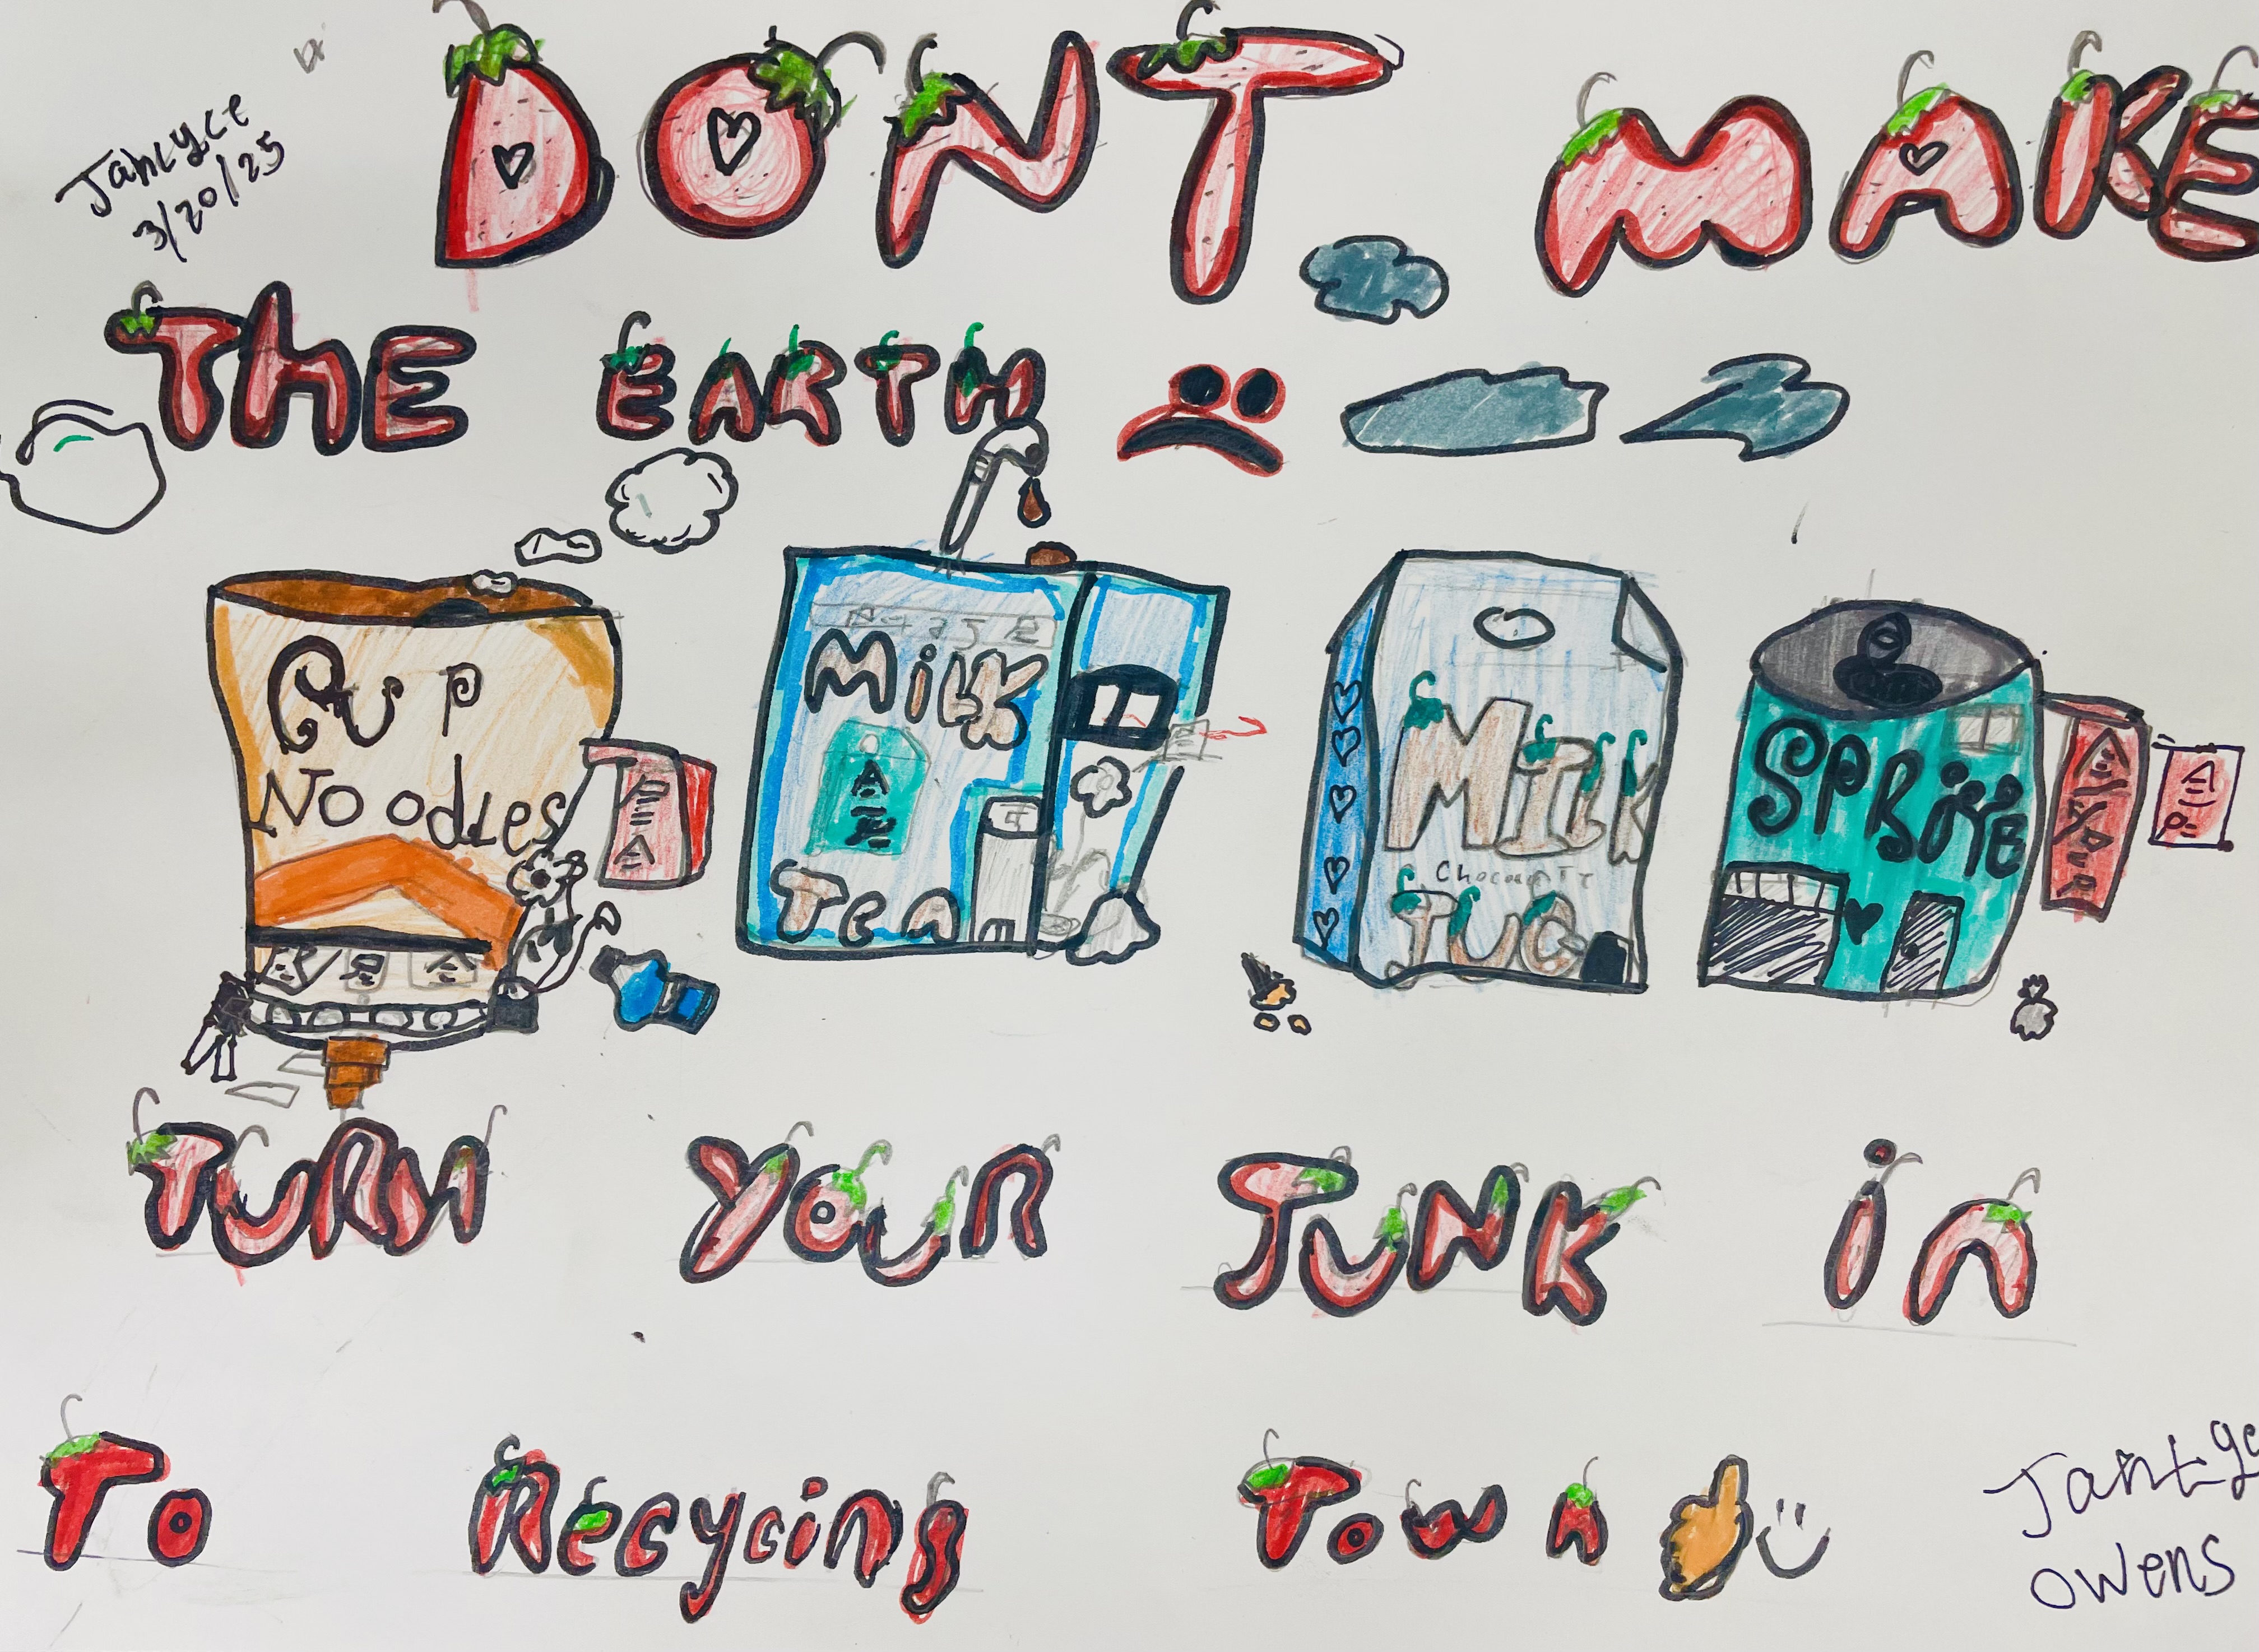 Jancyce
3/20/25
DONT MAKE
THE EARTH
CUP
NOodles
Milk
Tea
MILK
Chocolate
JUG
SPRiTE
TURN YOUR JUNK in
To Recycing Town
owens